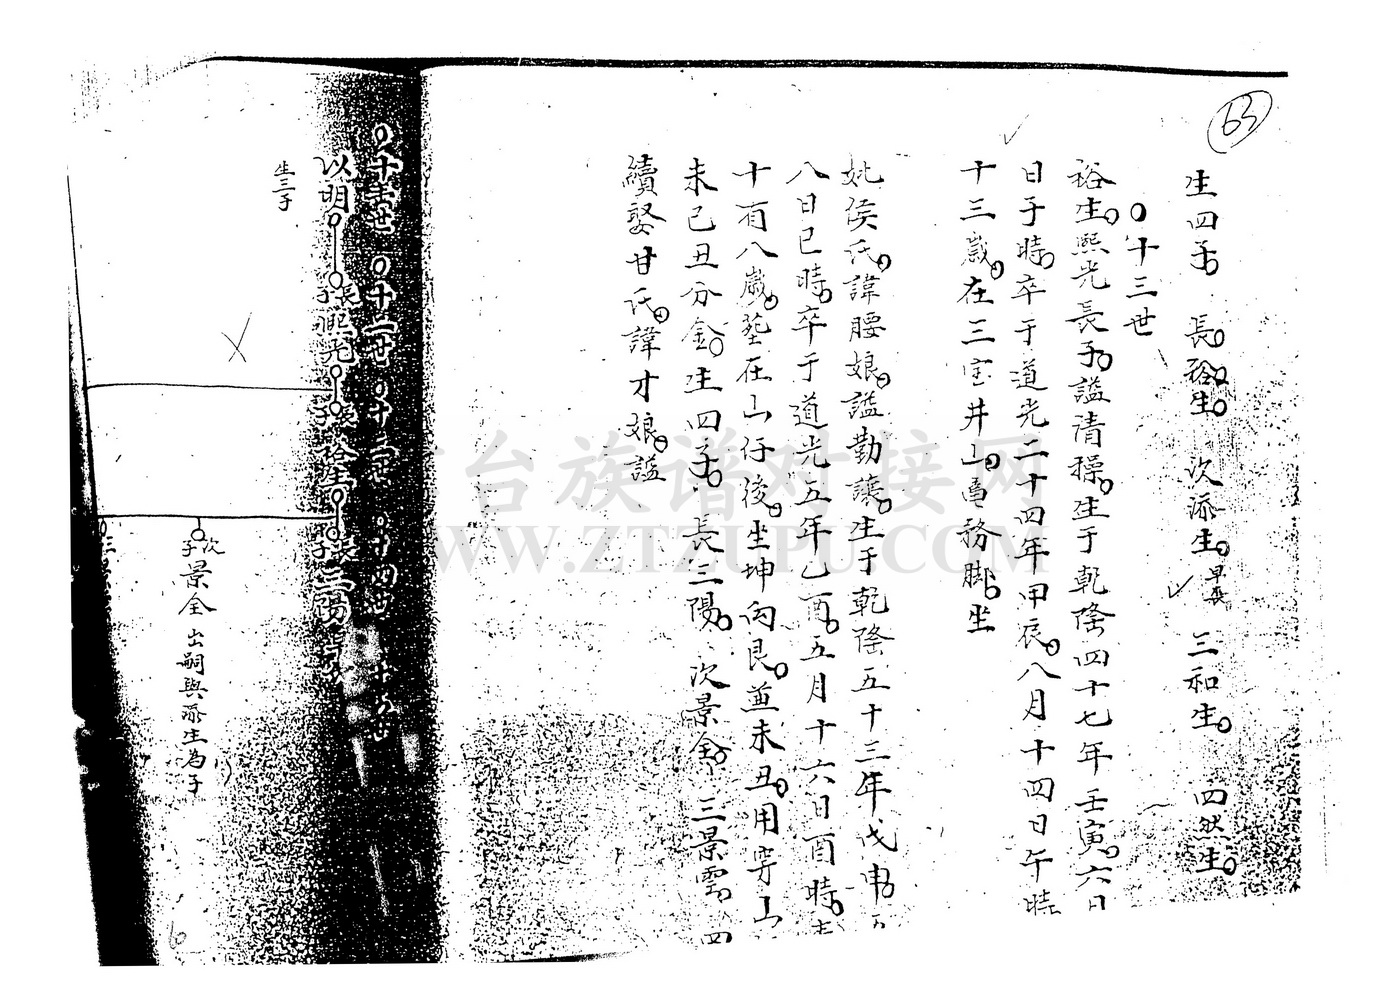 63
生四子 長裕生 次添生早喪 三和生 四狀生
十三世
裕生熙光長子謚清穆生于乾隆四十七年壬寅六日
日子時卒于道光二十四年甲辰八月十四日午時
十三歲在三宝井山 務脚坐
妣侯氏諱腰娘謚勤讓生于乾隆五十三年戊申五
八日巳時卒于道光五年乙酉五月十六日酉時
十有八歲塟在山仔後坐坤向艮兼未丑用穿山
未己丑分金生四子長三陽次景全三景雲四
續娶甘氏諱才娘謚
十二世 十三世 十四世 十五世
以明 長子熙光 長子裕生 長子三陽
生三子
次子景全 出嗣與添生為子
三
6
台族谱对接网
WWW.ZTZUPU.COM